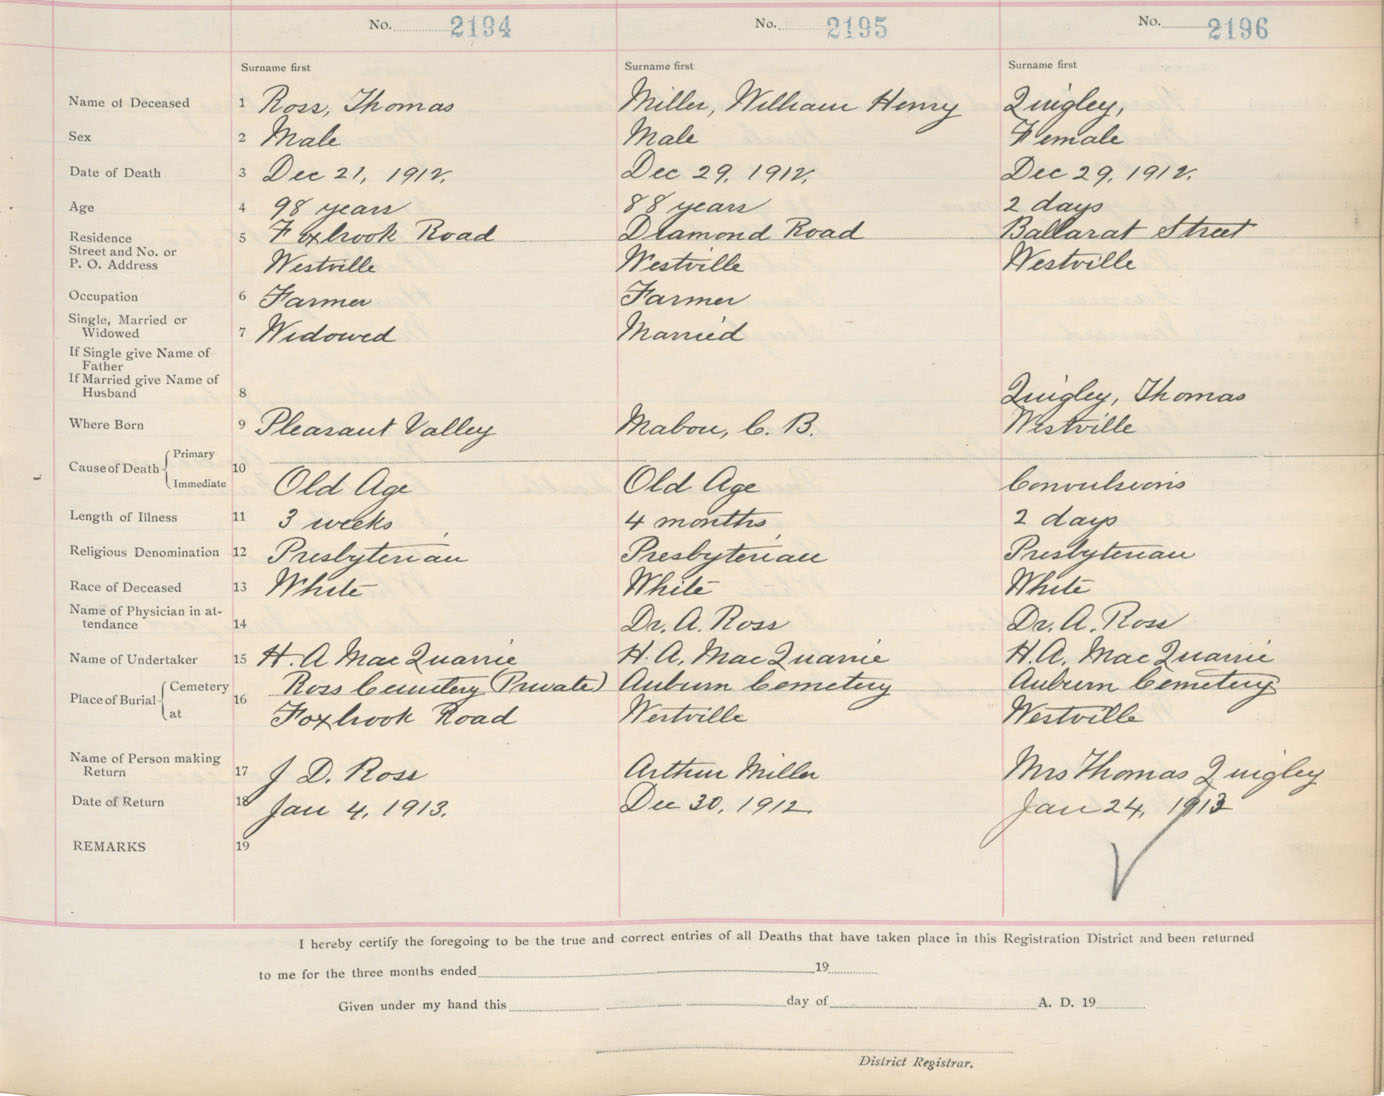 No. 2194 No. 2195 No. 2196
Surname first Surname first Surname first
Name of Deceased 1 Ross, Thomas Miller, William Henry Quigley,
Sex 2 Male Male Female
Date of Death 3 Dec 21, 1912. Dec 29, 1912. Dec 29, 1912.
Age 4 98 years 88 years 2 days
Residence 5 Foxbrook Road Diamond Road Ballarat Street
Street and No. or
P. O. Address Westville Westville Westville
Occupation 6 Farmer Farmer
Single, Married or
Widowed 7 Widowed Married
If Single give Name of
Father
If Married give Name of
Husband 8 Quigley, Thomas
Where Born 9 Pleasant Valley Mabou, C. B. Westville
Cause of Death Primary 10
Immediate Old Age Old Age Convulsions
Length of Illness 11 3 weeks 4 months 2 days
Religious Denomination 12 Presbyterian Presbyterian Presbyterian
Race of Deceased 13 White White White
Name of Physician in at-
tendance 14 Dr. A. Ross Dr. A. Ross
Name of Undertaker 15 H. A MacQuarrie H. A. MacQuarrie H. A. MacQuarrie
Place of Burial Cemetery 16 Ross Cemetery (Private) Auburn Cemetery Auburn Cemetery
at Foxbrook Road Westville Westville
Name of Person making
Return 17 J. D. Ross Arthur Miller Mrs Thomas Quigley
Date of Return 18 Jan 4, 1913. Dec 30, 1912. Jan 24, 1913
REMARKS 19
I hereby certify the foregoing to be the true and correct entries of all Deaths that have taken place in this Registration District and been returned
to me for the three months ended 19
Given under my hand this day of A. D. 19
District Registrar.